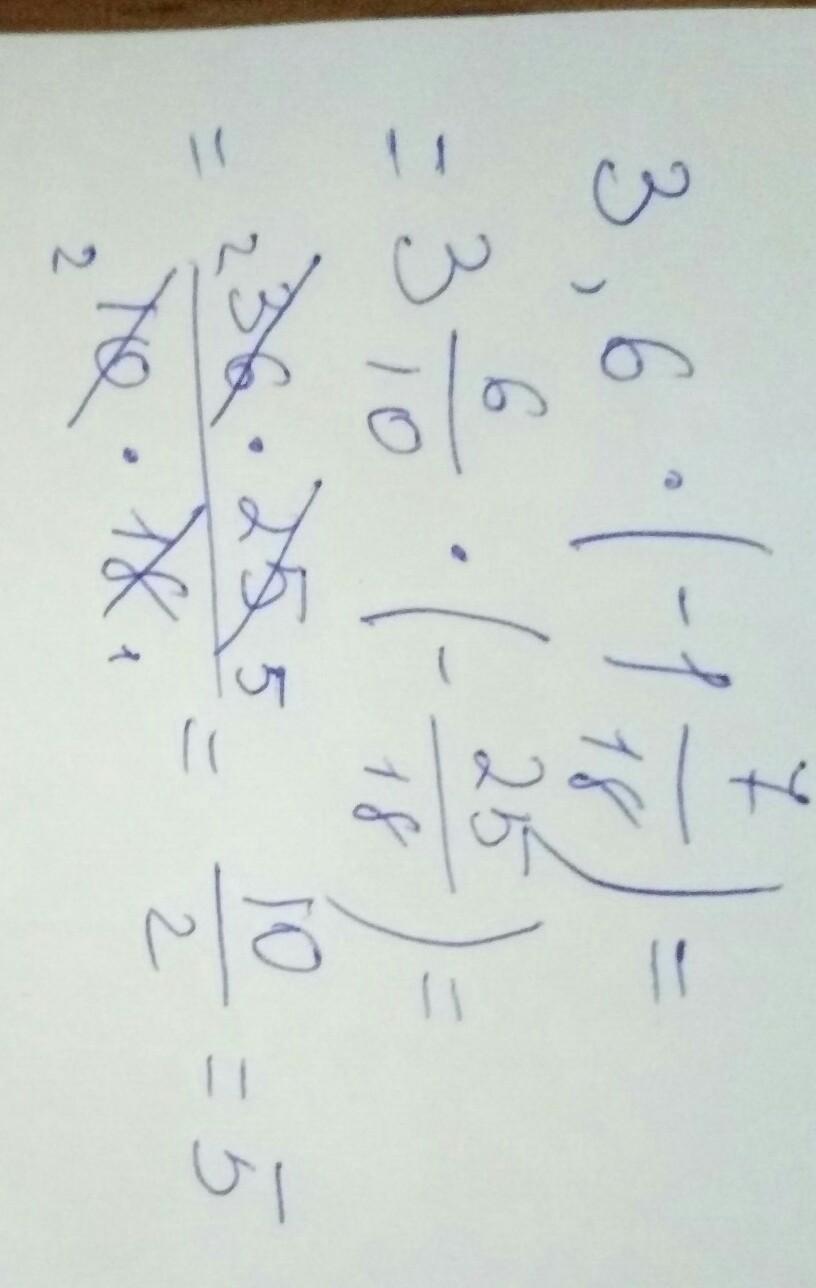 3,6 · (-1 7/18) =
= 3 6/10 · (- 25/18) =
= 2 36 · 25 5 / 2 10 · 18 1 = 10/2 = 5